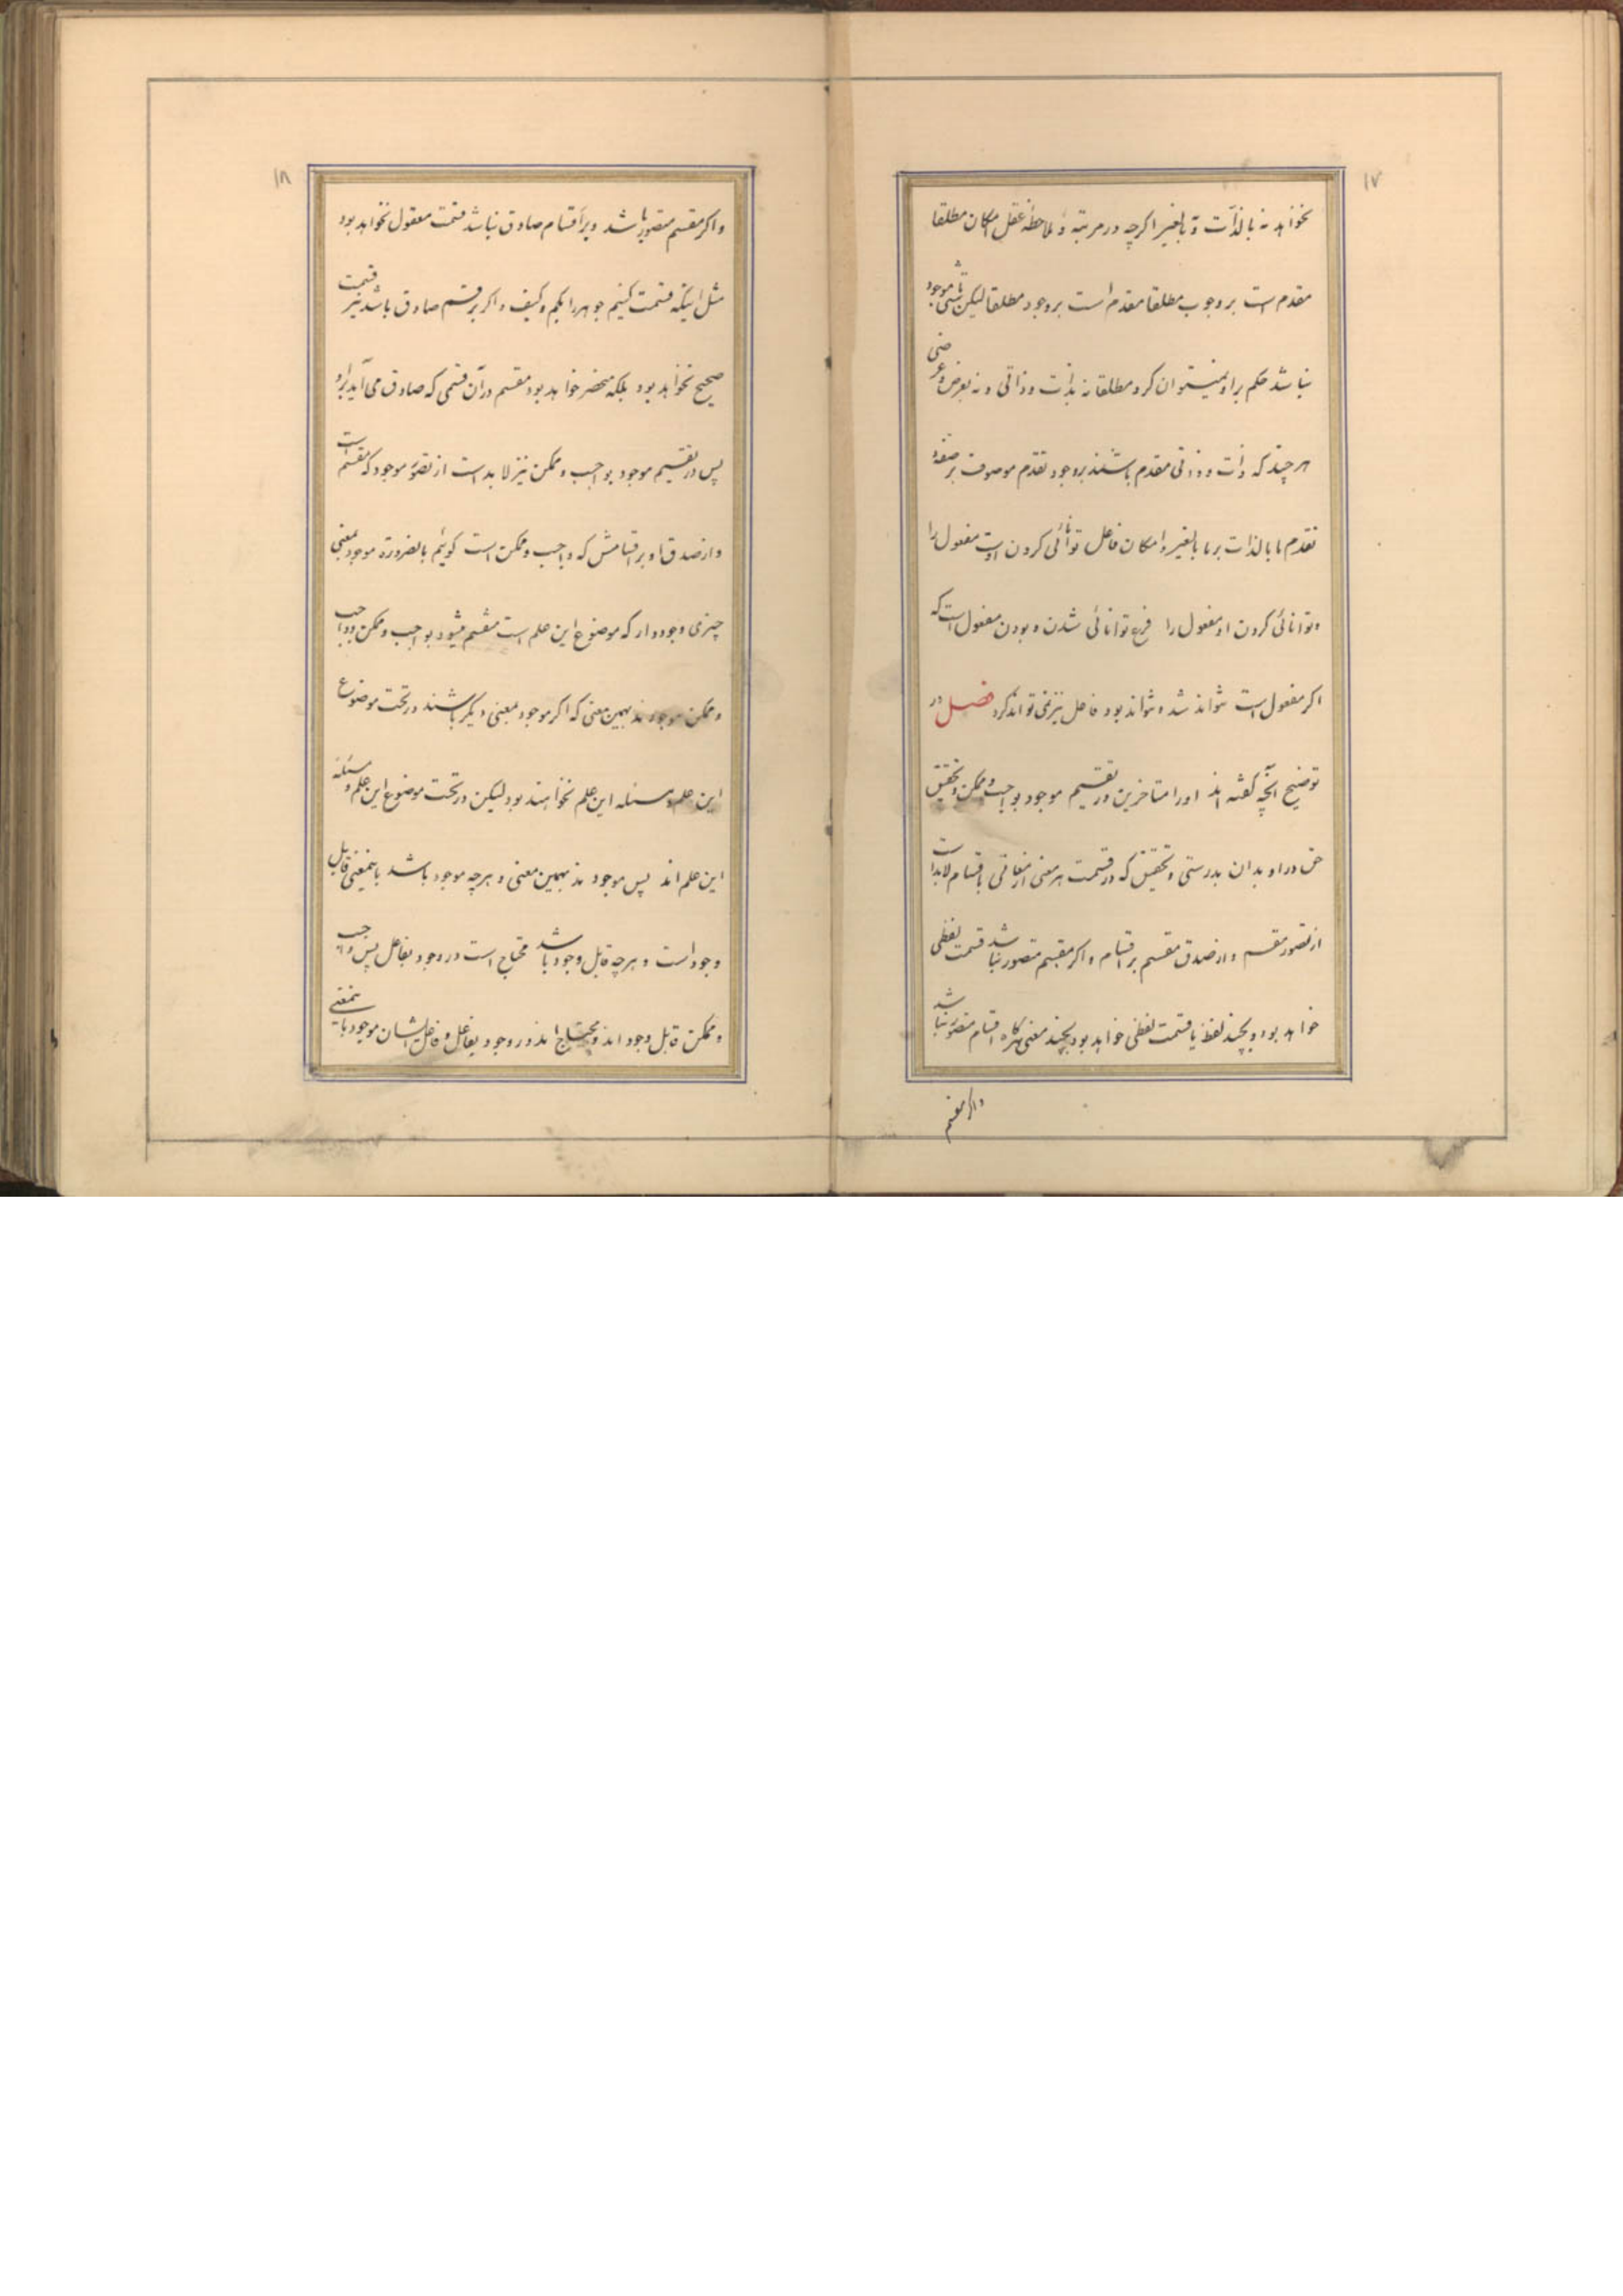 ١٧
نخواهد نه بالذات و نه بالغیر اگرچه در مرتبه و ملاحظهٔ عقل امکان مطلقا
مقدم است بر وجوب مطلقا مقدم است بر وجود مطلقا لیکن تا شیئی موجود
نباشد حکم بر او نمیتوان کرد مطلقا نه بذات و ذاتی و نه بعرض و عرضی
هر چند که ذات و ذاتی مقدم باشند بر وجود تقدم موصوف بر صفة و
تقدم ما بالذات بر ما بالغیر و امکان فاعل توانائی کردن اوست مفعول را
و توانائی کردن او مفعول را فرع توانائی شدن و بودن مفعول است که
اگر مفعول است نتواند شد و نتواند بود فاعل نیز نمی تواند کرد فصل در
توضیح آنچه گفته اند اورا متاخرین در تقسیم موجود بواجب و ممکن و تحقیق
حق در او بدان بدرستی و تحقیق که در قسمت هر معنی از معانی باقسام لابد است
از تصور مقسم و از صدق مقسم بر اقسام و اگر مقسم متصور نباشد قسمت لفظی
خواهد بود و بچند لفظ یا قسمت لفظی خواهد بود بچند معنی هرگاه اقسام متصور نباشد
و اگر مقسم
١٨
و اگر مقسم متصور باشد و بر اقسام صادق نباشد قسمت معقول نخواهد بود
مثل اینکه قسمت کنیم جوهر را بکم و کیف و اگر بر قسم صادق باشد نیز قسمت
صحیح نخواهد بود بلکه منحصر خواهد بود مقسم در آن قسمی که صادق می آید بر او
پس در تقسیم موجود بواجب و ممکن نیز لابد است از تصور موجود که مقسم است
و از صدق او بر اقسامش که واجب و ممکن است گوئیم بالضرورة موجود بمعنی
چیزی وجود دار که موضوع این علم است مقسم میشود بواجب و ممکن و واجب
و ممکن موجودند بهمین معنی که اگر موجود بمعنی دیگر باشند در تحت موضوع
این علم و مسئله این علم نخواهند بود لیکن در تحت موضوع این علم و مسئله
این علم اند پس موجودند بهمین معنی و هرچه موجود باشد باینمعنی قابل
وجود است و هرچه قابل وجود باشد محتاج است در وجود بفاعل پس واجب
و ممکن قابل وجود اند و محتاج اند در وجود بفاعل و فاعل ایشان موجود باینمعنی